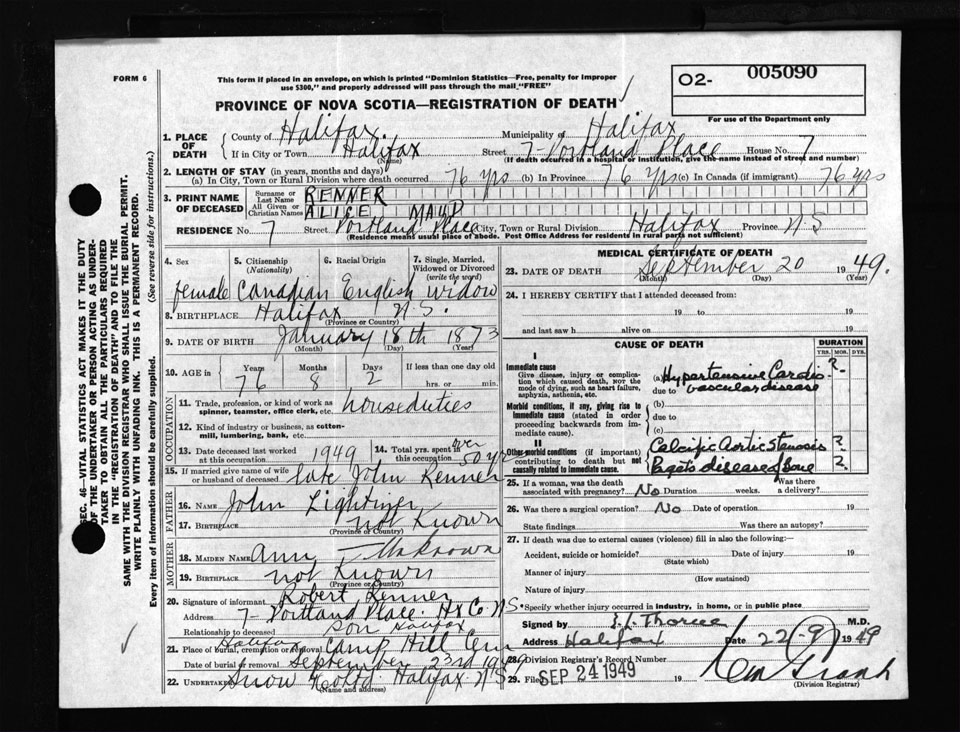 FORM 6
This form if placed in an envelope, on which is printed "Dominion Statistics—Free, penalty for improper
use $300," and properly addressed will pass through the mail "FREE"
O2- 005090
For use of the Department only
PROVINCE OF NOVA SCOTIA—REGISTRATION OF DEATH
1. PLACE OF DEATH
County of Halifax. Municipality of Halifax
If in City or Town Halifax Street 7-Portland Place House No. 7
(Name) (If death occurred in a hospital or institution, give the name instead of street and number)
2. LENGTH OF STAY (in years, months and days)
(a) In City, Town or Rural Division where death occurred 76 yrs (b) In Province 76 yrs (c) In Canada (if immigrant) 76 yrs
3. PRINT NAME OF DECEASED
Surname or Last Name RENNER
All Given or Christian Names ALICE MAUD
RESIDENCE No. 7 Street Portland Place City, Town or Rural Division Halifax Province N-S
(Residence means usual place of abode. Post Office Address for residents in rural parts not sufficient)
4. Sex
female
5. Citizenship (Nationality)
Canadian
6. Racial Origin
English
7. Single, Married, Widowed or Divorced (write the word)
widow
8. BIRTHPLACE Halifax N.S.
(Province or Country)
9. DATE OF BIRTH January 18th 1873
(Month) (Day) (Year)
10. AGE in Years 76 Months 8 Days 2 If less than one day old
hrs. or min.
OCCUPATION
11. Trade, profession, or kind of work as
spinner, teamster, office clerk, etc. houseduties
12. Kind of industry or business, as cotton-
mill, lumbering, bank, etc.
13. Date deceased last worked
at this occupation 1949
14. Total yrs. spent in
this occupation over 50 yrs
15. If married give name of wife
or husband of deceased late John Renner
FATHER
16. Name John Lightizer
17. Birthplace not Known
(Province or Country)
MOTHER
18. MAIDEN NAME Ann - Unknown
19. BIRTHPLACE not Known
(Province or Country)
20. Signature of informant Robert Renner
Address 7- Portland Place. Hx Co N.S.
Relationship to deceased son Halifax
21. Place of burial, cremation or removal Halifax Camp Hill Cem
Date of burial or removal September 23rd 1949
22. Undertaker Snow & Co Ltd. Halifax N S
(Name and address)
MEDICAL CERTIFICATE OF DEATH
23. DATE OF DEATH September 20 1949.
(Month) (Day) (Year)
24. I HEREBY CERTIFY that I attended deceased from:
19 to 19
and last saw h alive on 19
CAUSE OF DEATH
DURATION
YRS. MOS. DYS.
I
Immediate cause
Give disease, injury or compli-
cation which caused death, NOT the
mode of dying, such as heart failure,
asphyxia, asthenia, etc.
(a) Hypertensive Cardio ?
due to vascular disease
Morbid conditions, if any, giving rise to
immediate cause (stated in order
proceeding backwards from im-
mediate cause).
(b)
due to
(c)
II
Other morbid conditions (if important)
contributing to death but not
causally related to immediate cause.
Calcific Aortic Stenosis ?
Pagets disease of bone ?
25. If a woman, was the death
associated with pregnancy? No Duration weeks. Was there
a delivery?
26. Was there a surgical operation? No Date of operation 19
State findings Was there an autopsy?
27. If death was due to external causes (violence) fill in also the following:—
Accident, suicide or homicide? Date of injury 19
(State which)
Manner of injury
(How sustained)
Nature of injury
Specify whether injury occurred in industry, in home, or in public place
Signed by M.D.
Address Halifax Date 22-9 1949
28. Division Registrar's Record Number
29. Filed SEP 24 1949 19
(Division Registrar)
SEC. 46—VITAL STATISTICS ACT MAKES IT THE DUTY
OF THE UNDERTAKER OR PERSON ACTING AS UNDER-
TAKER TO OBTAIN ALL THE PARTICULARS REQUIRED
IN THE "REGISTRATION OF DEATH" AND TO FILE THE
SAME WITH THE DIVISION REGISTRAR WHO SHALL ISSUE THE BURIAL PERMIT.
WRITE PLAINLY WITH UNFADING INK. THIS IS A PERMANENT RECORD.
Every item of information should be carefully supplied. (See reverse side for instructions.)